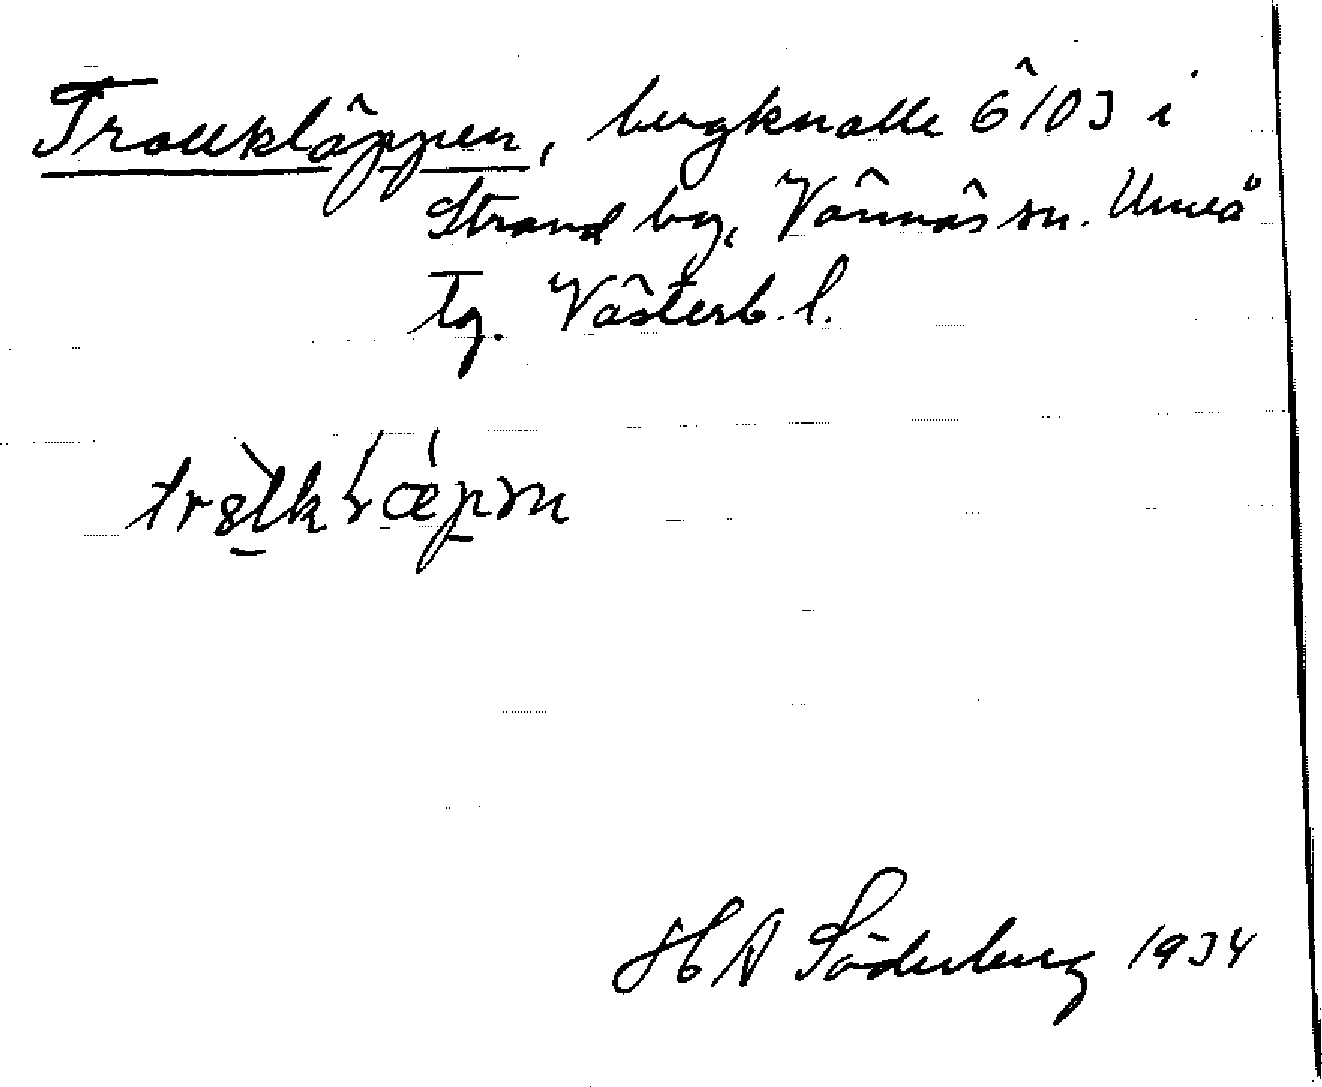 Trollkläppen, bergknalle ö 103 i
Strand by, Vännäs sn. Umeå
tg. Västerb. l.
H A Söderberg 1934